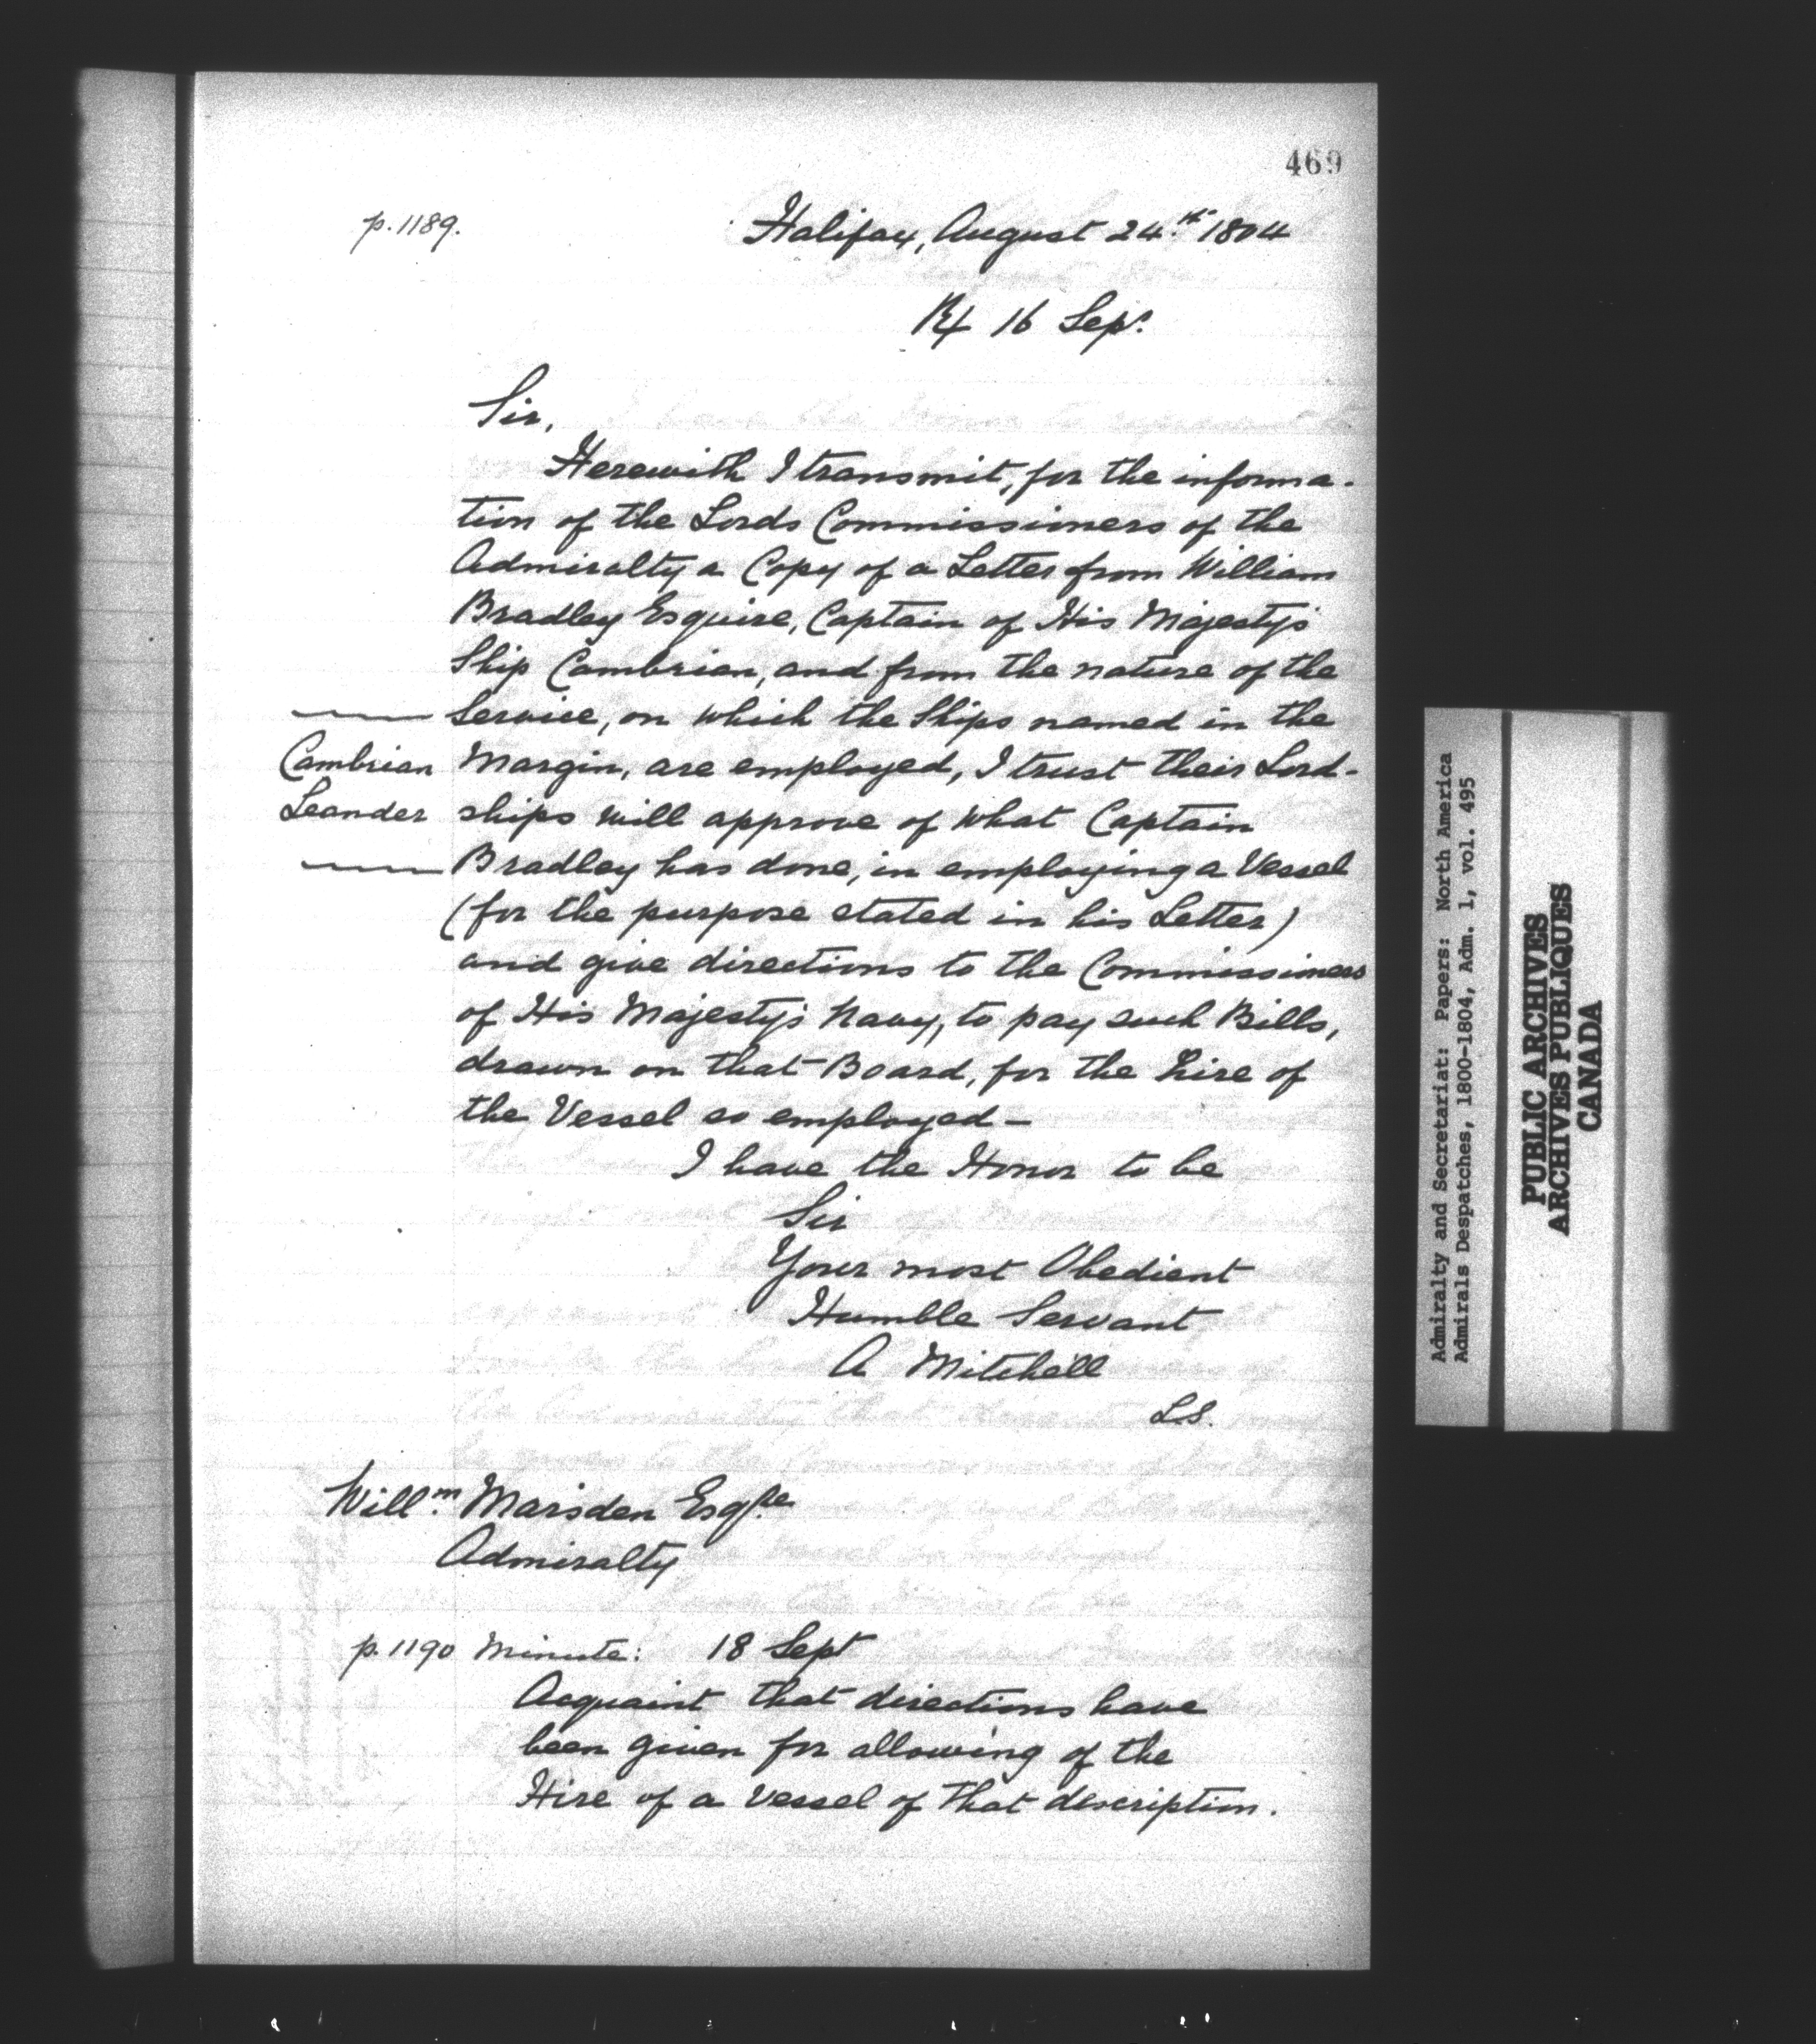 469
p. 1189.
Halifax, August 24.th 1804
Rx 16 Sepr.
Sir,
Herewith I transmit, for the informa-
tion of the Lords Commissioners of the
Admiralty a Copy of a Letter from William
Bradley Esquire, Captain of His Majesty's
Ship Cambrian, and from the nature of the
Service, on which the Ships named in the
Cambrian
Leander
Margin, are employed, I trust their Lord-
ships will approve of what Captain
Bradley has done, in employing a Vessel
(for the purpose stated in his Letter)
and give directions to the Commissioners
of His Majesty's Navy, to pay such Bills,
drawn on that Board, for the hire of
the Vessel so employed—
I have the Honor to be
Sir
Your most Obedient
Humble Servant
A Mitchell
L.S.
Will.m Marsden Esq.re
Admiralty
p. 1190 Minute: 18 Sept
Acquaint that directions have
been given for allowing of the
Hire of a Vessel of that description.
Admiralty and Secretariat: Papers: North America
Admirals Despatches, 1800-1804, Adm. 1, vol. 495
PUBLIC ARCHIVES
ARCHIVES PUBLIQUES
CANADA